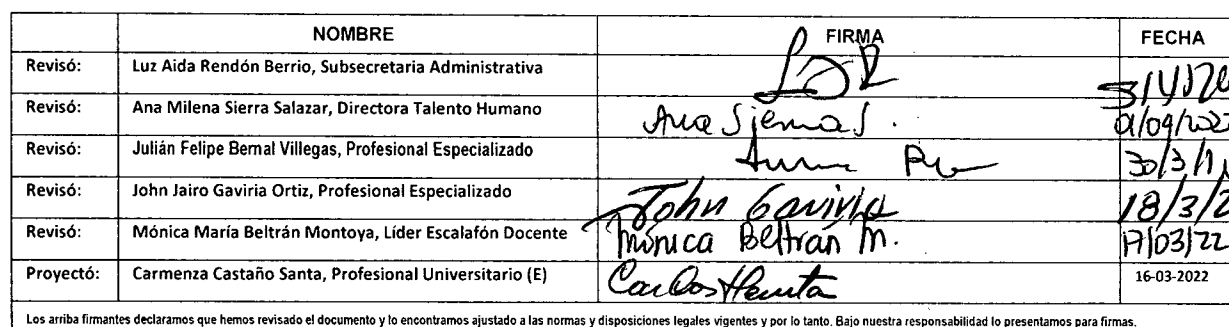 NOMBRE FIRMA FECHA
Revisó: Luz Aida Rendón Berrio, Subsecretaria Administrativa
Revisó: Ana Milena Sierra Salazar, Directora Talento Humano Ana Sierra S.
Revisó: Julián Felipe Bernal Villegas, Profesional Especializado 30/3/
Revisó: John Jairo Gaviria Ortiz, Profesional Especializado John Gaviria 18/3/2
Revisó: Mónica María Beltrán Montoya, Líder Escalafón Docente Mónica Beltran M. 17/03/22
Proyectó: Carmenza Castaño Santa, Profesional Universitario (E) 16-03-2022
Los arriba firmantes declaramos que hemos revisado el documento y lo encontramos ajustado a las normas y disposiciones legales vigentes y por lo tanto. Bajo nuestra responsabilidad lo presentamos para firmas.